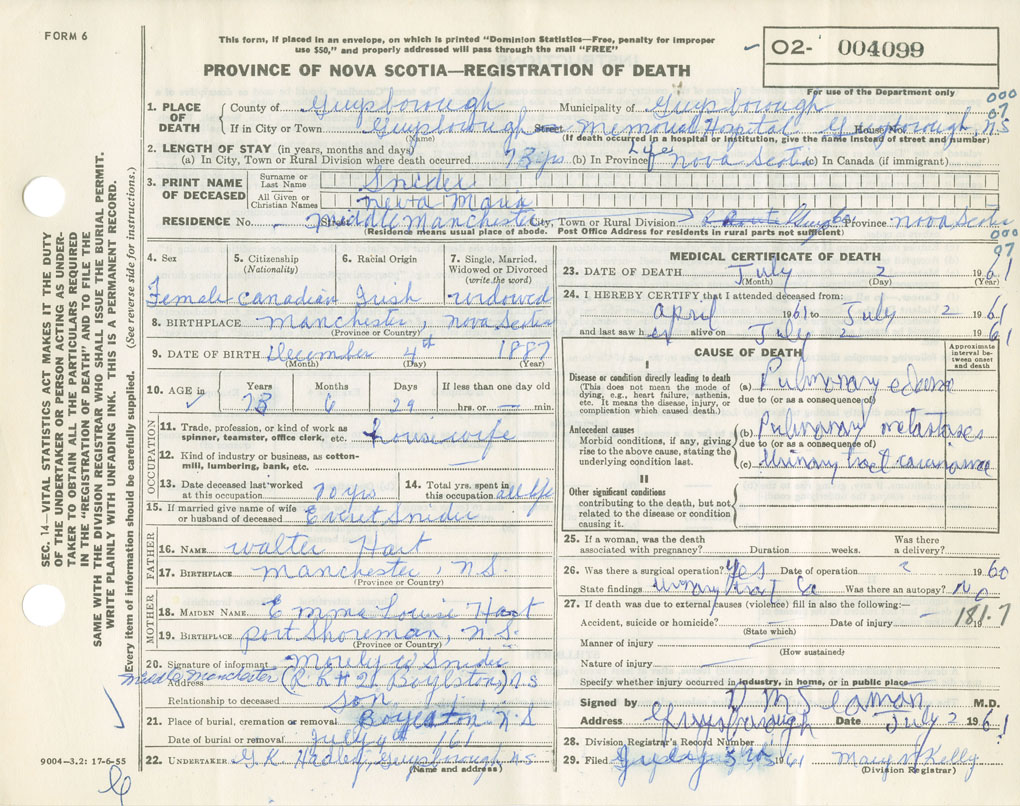 FORM 6
This form, if placed in an envelope, on which is printed "Dominion Statistics—Free, penalty for improper
use $50," and properly addressed will pass through the mail "FREE"
02- 004099
PROVINCE OF NOVA SCOTIA—REGISTRATION OF DEATH
For use of the Department only
000
07
1. PLACE OF DEATH
County of Guysborough Municipality of Guysborough
If in City or Town Guysborough Street Memorial Hospital Guysborough, N.S House No.
(Name) (If death occurred in a hospital or institution, give the name instead of street and number)
2. LENGTH OF STAY (in years, months and days)
(a) In City, Town or Rural Division where death occurred 73 yrs (b) In Province Life Nova Scotia (c) In Canada (if immigrant)
3. PRINT NAME OF DECEASED
Surname or Last Name Snider
All Given or Christian Names Neva Maria
RESIDENCE No. - Street Middle Manchester City, Town or Rural Division Province Nova Scotia
(Residence means usual place of abode. Post Office Address for residents in rural parts not sufficient)
000
07
4. Sex
Female
5. Citizenship
(Nationality)
Canadian
6. Racial Origin
Irish
7. Single, Married,
Widowed or Divorced
(write the word)
widowed
8. BIRTHPLACE Manchester, Nova Scotia
(Province or Country)
9. DATE OF BIRTH December 4th 1887
(Month) (Day) (Year)
10. AGE in
Years 73
Months 6
Days 29
If less than one day old
hrs. or — min.
OCCUPATION
11. Trade, profession or kind of work as
spinner, teamster, office clerk, etc. housewife
12. Kind of industry or business, as cotton-
mill, lumbering, bank, etc. —
13. Date deceased last worked
at this occupation 70 yrs
14. Total yrs. spent in
this occupation all life
15. If married give name of wife
or husband of deceased Everet Snider
FATHER
16. NAME Walter Hart
17. BIRTHPLACE Manchester, N.S.
(Province or Country)
MOTHER
18. MAIDEN NAME Emma Louise Hart
19. BIRTHPLACE Port Shoreman, N.S.
(Province or Country)
20. Signature of informant Morely W Snider
Address Middle Manchester (R.R # 2 Boylston) N.S
Relationship to deceased Son
21. Place of burial, cremation or removal Boylston N.S
Date of burial or removal July 4th 1961
22. UNDERTAKER G.K. Hadley, Guysborough N.S
(Name and address)
MEDICAL CERTIFICATE OF DEATH
23. DATE OF DEATH July 2 1961
(Month) (Day) (Year)
24. I HEREBY CERTIFY that I attended deceased from:
April 1961 to July 2 1961
and last saw her alive on July 2 1961
CAUSE OF DEATH
Approximate
interval be-
tween onset
and death
I
Disease or condition directly leading to death
(This does not mean the mode of
dying, e.g., heart failure, asthenia,
etc. It means the disease, injury, or
complication which caused death.)
(a) Pulmonary edema
due to (or as a consequence of)
Antecedent causes
Morbid conditions, if any, giving
rise to the above cause, stating the
underlying condition last.
(b) Pulmonary metastases
due to (or as a consequence of)
(c) Urinary tract carcinoma
II
Other significant conditions
contributing to the death, but not
related to the disease or condition
causing it.
25. If a woman, was the death
associated with pregnancy? Duration weeks. Was there
a delivery?
26. Was there a surgical operation? Yes Date of operation ? 1960
State findings Urinary tract Ca Was there an autopsy? No
27. If death was due to external causes (violence) fill in also the following:—
Accident, suicide or homicide? — Date of injury — 19
(State which)
181.7
Manner of injury —
(How sustained)
Nature of injury —
Specify whether injury occurred in industry, in homes, or in public place —
Signed by D M Seaman M.D.
Address Guysborough Date July 2 1961
28. Division Registrar's Record Number
29. Filed July 3rd 1961 Mary N Kelly
(Division Registrar)
SEC. 14—VITAL STATISTICS ACT MAKES IT THE DUTY
OF THE UNDERTAKER OR PERSON ACTING AS UNDER-
TAKER TO OBTAIN ALL THE PARTICULARS REQUIRED
IN THE "REGISTRATION OF DEATH" AND TO FILE THE
SAME WITH THE DIVISION REGISTRAR WHO SHALL ISSUE THE BURIAL PERMIT.
WRITE PLAINLY WITH UNFADING INK. THIS IS A PERMANENT RECORD.
Every item of information should be carefully supplied. (See reverse side for instructions.)
9004—3.2: 17-6-55